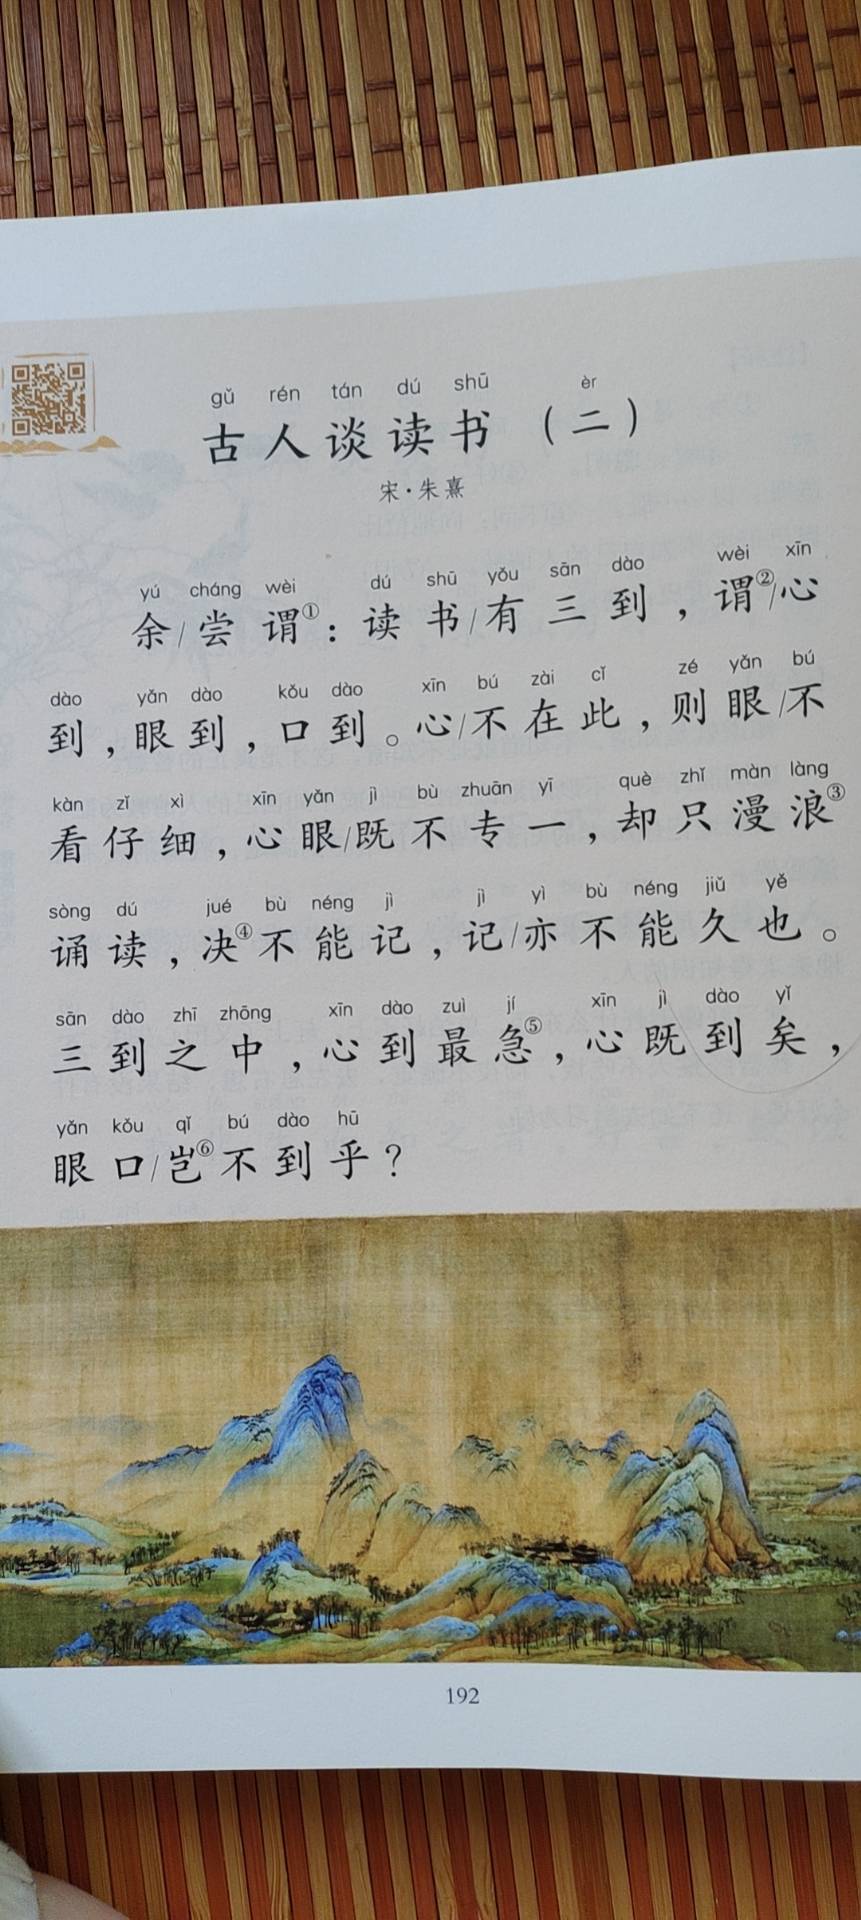 gǔ rén tán dú shū èr
古人谈读书（二）
宋·朱熹
yú cháng wèi dú shū yǒu sān dào wèi xīn
余/尝谓①：读书/有三到，谓②/心
dào yǎn dào kǒu dào xīn bú zài cǐ zé yǎn bú
到，眼到，口到。心/不在此，则眼/不
kàn zǐ xì xīn yǎn jì bù zhuān yī què zhǐ màn làng
看仔细，心眼/既不专一，却只漫浪③
sòng dú jué bù néng jì jì yì bù néng jiǔ yě
诵读，决④不能记，记/亦不能久也。
sān dào zhī zhōng xīn dào zuì jí xīn jì dào yǐ
三到之中，心到最急⑤，心既到矣，
yǎn kǒu qǐ bú dào hū
眼口/岂⑥不到乎？
192